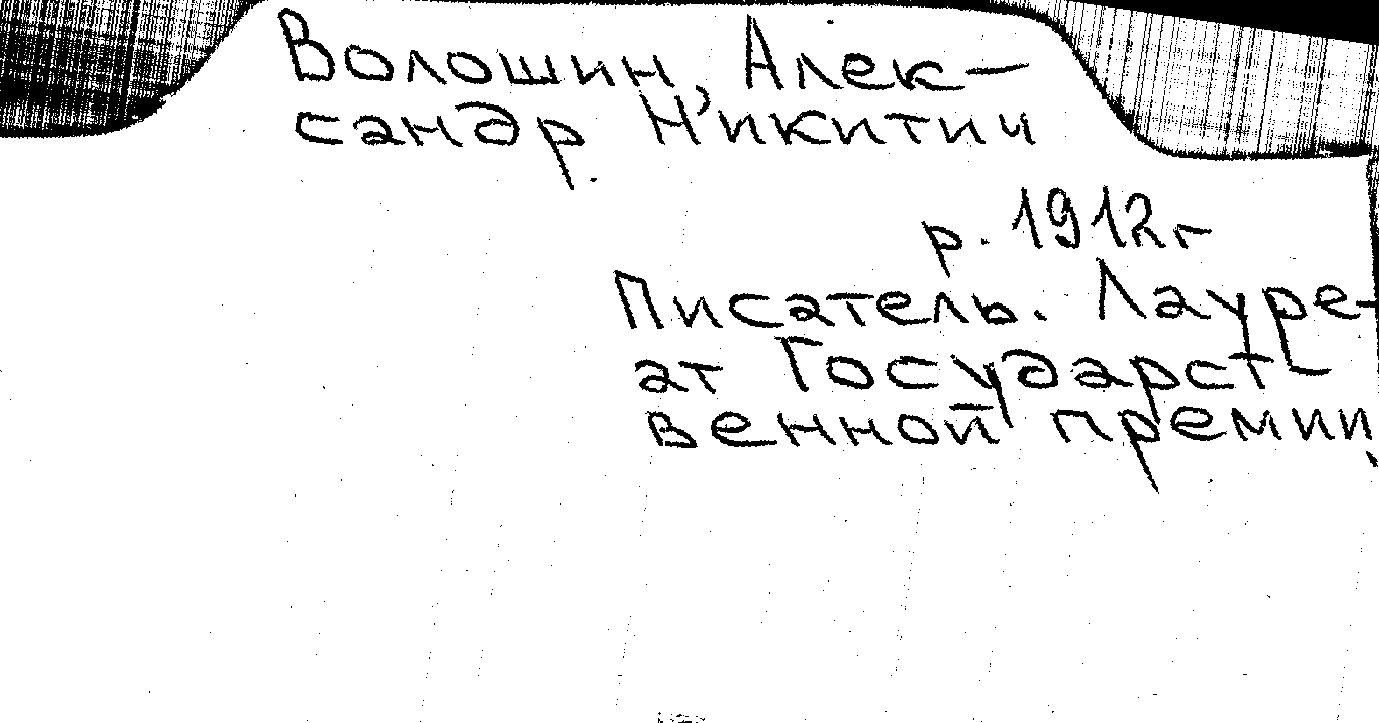 Волошин, Алек-
сандр Никитич
р. 1912г
Писатель. Лауре-
ат Государст-
венной премии.